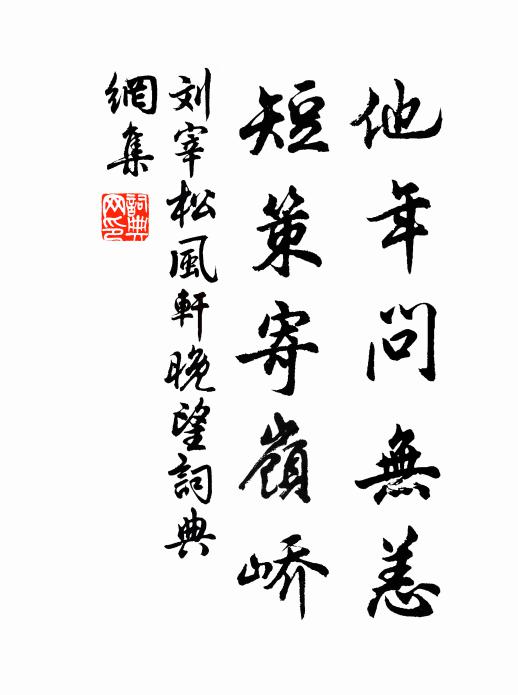 他年問無恙
短策寄嶺嶠
刘宰松風軒晚望詞典
網集
詞典网印